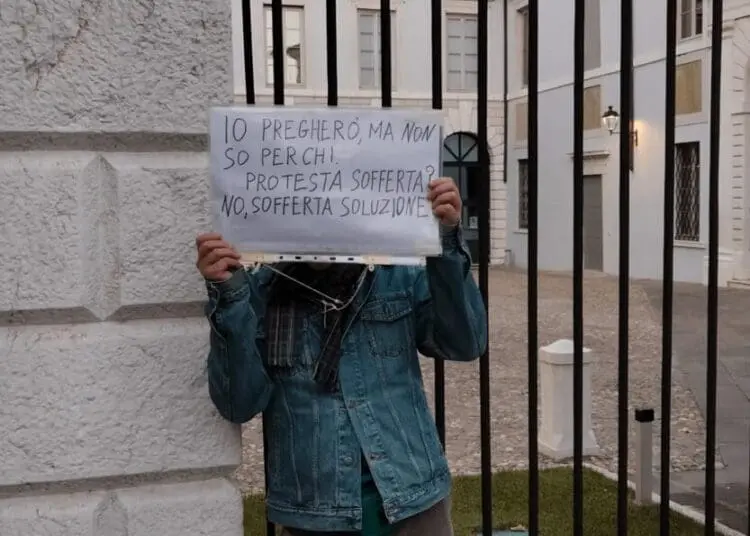 IO PREGHERÒ, MA NON
SO PER CHI.
PROTESTA SOFFERTA?
NO, SOFFERTA SOLUZIONE